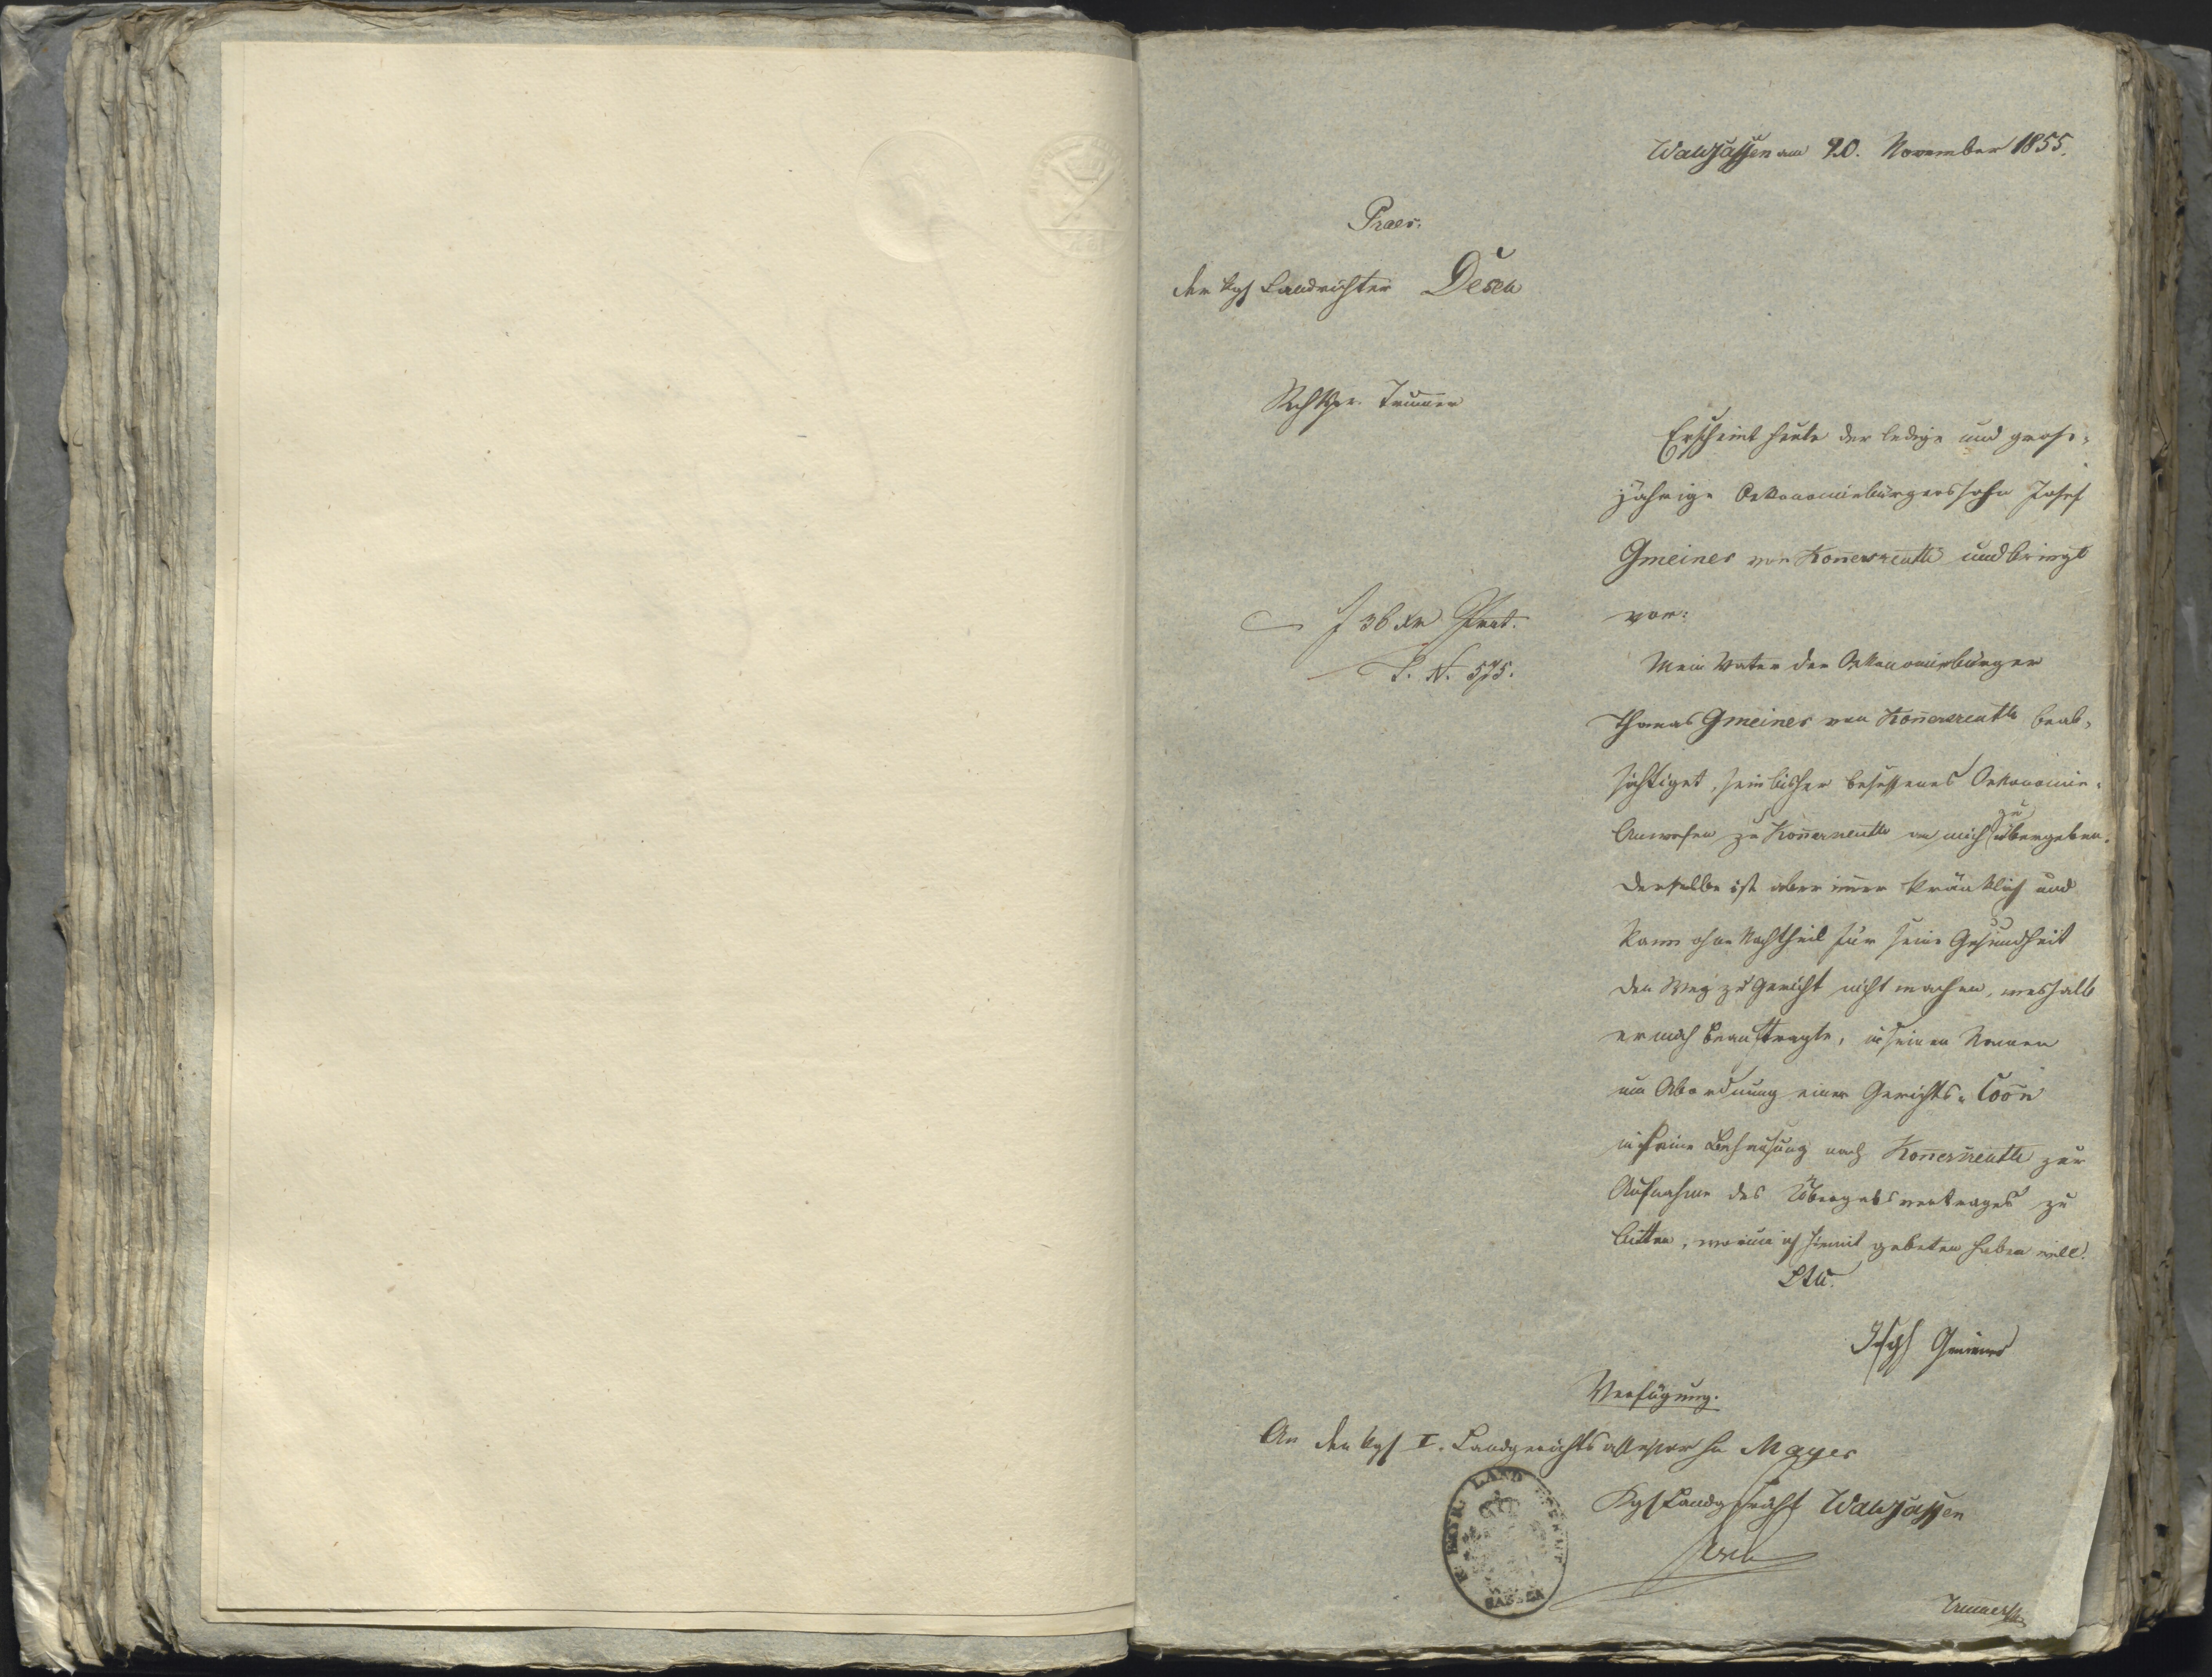 Waldsassen am 20. November 1855.
Praes.
der kgl Landrichter Desch
Rchtspr. Trummer
Erscheint heute der ledige und groß-
jährige Oekonomiebürgerssohn Josef
Gmeiner von Kon̄ersreuth und bringt
vor:
f 36 xr Prot.
T. N. 575.
Mein Vater der Oekonomiebürger
Thomas Gmeiner von Kon̄ersreuth beab-
sichtiget, sein bisher besessenes Oekonomie-
Anwesen zu Kon̄ersreuth an mich zu übergeben.
Derselbe ist aber im̄er kränklich und
kann ohne Nachtheil für seine Gesundheit
den Weg zu Gericht nicht machen, weshalb
er mich beauftragte, in seinem Namen
um Abordnung einer Gerichts-Coōn
in seine Behausung nach Kon̄ersreuth zur
Aufnahme des Übergabsvertrages zu
bitten, worum ich hiemit gebeten haben will.
Joseph Gmeiner
Verfügung.
An den kgl I. Landgerichtsassessor Hn Mayer
Kgl Landgericht Waldsassen
Desch
K. BAYR. LANDGERICHT
SASSEN
Trummer